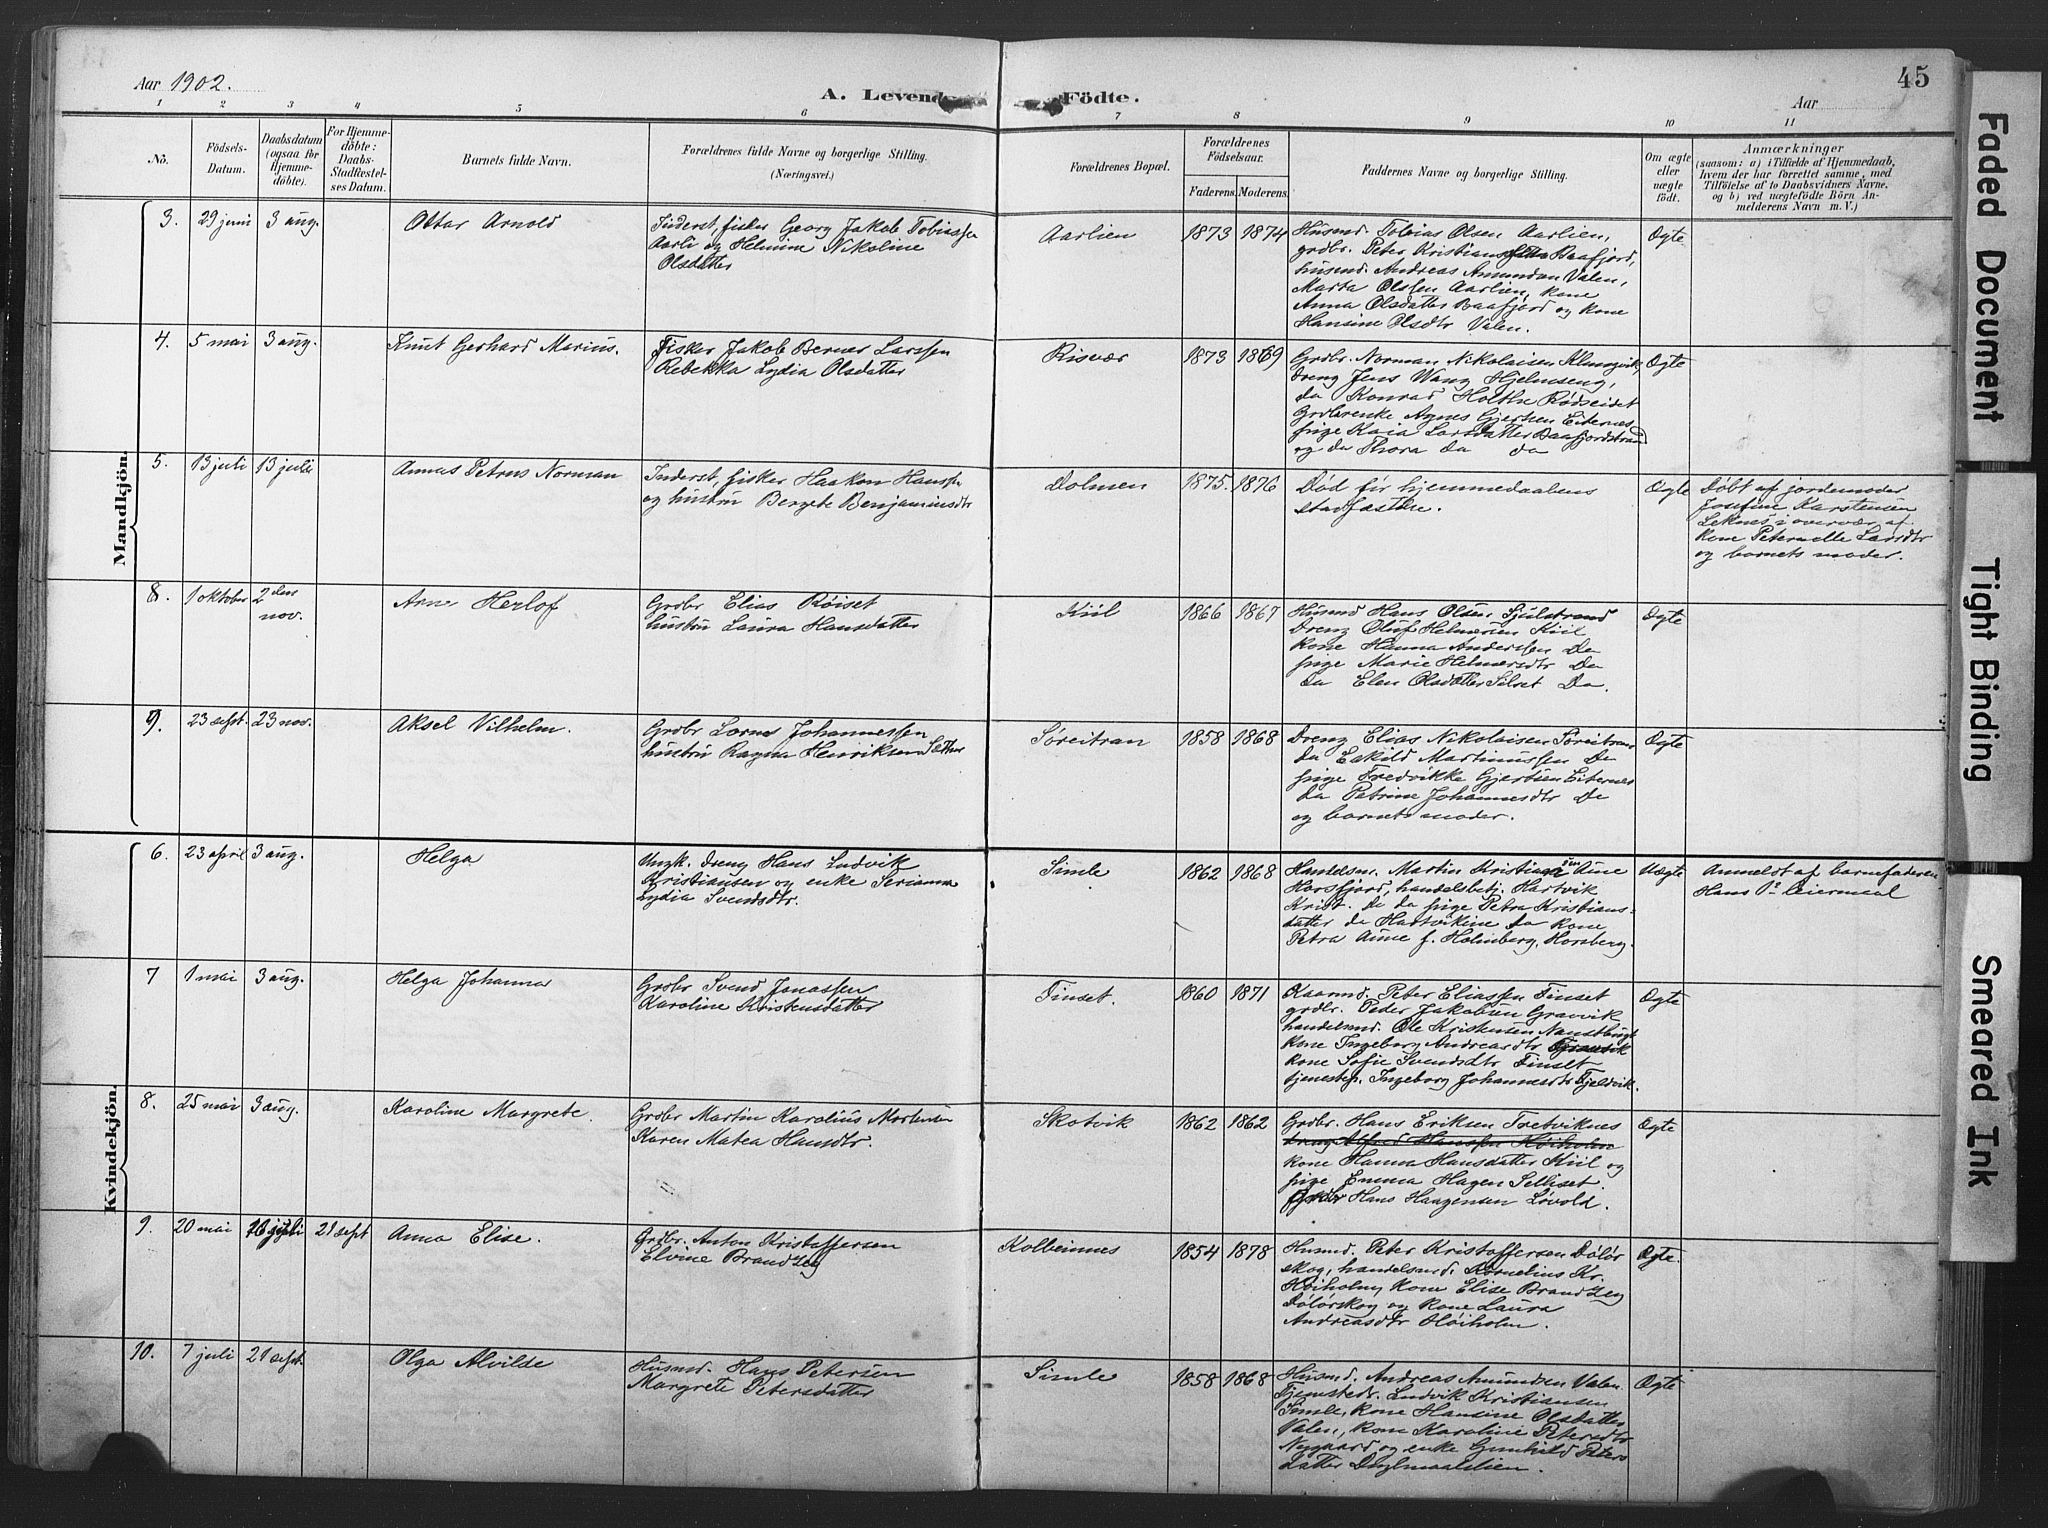 Aar 1902.
A. Levend
Födte.
Aar
45
1 2 3 4 5 6 7 8 9 10 11
No.
Födsels-
Datum.
Daabsdatum
(ogsaa for
Hjemme-
döbte).
For Hjemme-
döbte:
Daabs-
Stadfæstel-
ses Datum.
Barnets fulde Navn.
Forældrenes fulde Navne og borgerlige Stilling.
(Næringsvei.)
Forældrenes Bopæl.
Forældrenes
Födselsaar.
Faderens. Moderens.
Faddernes Navne og borgerlige Stilling.
Om ægte
eller
uægte
födt.
Anmærkninger
(saasom: a) i Tilfælde af Hjemmedaab,
hvem der har forrettet samme, med
Tilföielse af to Daabsvidners Navne,
og b) ved uægtefödte Börn An-
melderens Navn m. V.)
Mandkjön.
3. 29 juni 3 aug. Ottar Arnold
Inderst, fisker Georg Jakob Tobiassen
Aarli og Helmine Nikoline
Olsdatter
Aarlien 1873 1874
Husmd. Tobias Olsen Aarlien,
grdbr. Peter Kristian Baafjord,
husmd. Andreas Amundsn Valen,
Marta Olssen Aarlien, kone
Anna Olsdatter Baafjord og kone
Hansine Olsdtr Valen.
Ægte
4. 5 mai 3 aug. Knut Gerhard Marius.
Fisker Jakob Berner Larssen
Rebekka Lydia Olsdatter
Risvær 1873 1869
Grdbr. Norman Nikolaisen
Dreng Jens Wang Hjelmseng,
da Konrad Holthe Rødseidet
Grdbrenke Agnes Gjertsen Eiternes
pige Kaia Larsdatter Baafjordstrand
og da Thora da da
Ægte
5. 13 juli 13 juli Annas Petrus Norman
Inderst, fisker Haakon Hanssen
og hustru Bergete Benjaminsdtr
Dolmen 1875. 1876
Død før hjemmedaabens
stadfæstelse.
Ægte
Døbt af jordemoder
Josefine Karstensen
Leknes i overvær af
kone Peternelle Larsdtr
og barnets moder.
8. 1 oktober 2den nov. Arne Herlof
Grdbr Elias Røiset
hustru Laura Hansdatter
Kiil 1866 1867
Husmd Hans Olsen Sjulstrand
Dreng Oluf Helmersen Kiil
kone Hanna Anderssen Do
pige Marie Helmersdtr Do
da Elen Olsdatter Silset Do.
Ægte
9. 23 sept. 23 nov. Aksel Vilhelm.
Grdbr Lorns Johannessen
hustru Ragna Henriksen Sæther
Søreitran 1858 1868
Dreng Elias Nikolaisen Søreitran
da Eskild Martinussen Do
pige Fredrikke Gjertsen Eiternes
da Petrine Johannesdtr Do
og barnets moder.
Ægte
Kvindekjön.
6. 23 april 3 aug. Helga
Ungk. dreng Hans Ludvik
Kristiansen og enke Serianna
Lydia Svendsdtr.
Simle 1862 1868
Handelsm. Martin Kristiansen Aune
Horsfjord, handelsbetj. Hartvik
Krist. do da pige Petra Kristians-
datter da Hartvikine Do kone
Petra Aune f. Holmberg, Horsberg.
Uægte
Anmeldt af barnefaderen
Hans 1ste leiermaal
7 1 mai 3 aug. Helga Johanna
Grdbr Svend Jonassen
Karoline Kristensdatter
Finset. 1860 1871
Kaarmd. Peter Eliassen Finset
grdbr. Peder Jakobsen Gravvik
handelsmd. Ole Kristensen
kone Ingeborg Andreasdtr Gravvik
kone Sofie Svendsdtr Finset
tjenestep. Ingeborg Johannesdtr Fjeldvik.
Ægte
8. 25 mai 3 aug. Karoline Margrete.
Grdbr Martin Karolius Mortensen
Karen Matea Hansdtr.
Skotvik 1862 1862
Grdbr. Hans Eriksen Tretviknes
dreng Alfred Hanssen Høiholm
kone Hanna Hansdatter Kiil og
pige Emma Hagen Selliset.
Grdbr Hans Haagensen Løvold.
Ægte
9. 20 mai juli 21 sept Anna Elise.
Grdbr. Anton Kristoffersen
Elvine Brandzeg
Kolbeinnes 1854 1878
Husmd. Peter Kristoffersen Dølør
skog, handelsmd. Kornelius Kr.
Høiholm, kone Elise Brandzeg
Dølørskog og kone Laura
Andreasdtr Høiholm.
Ægte.
10. 7 juli 21 sept. Olga Alvilde
Husmd. Hans Petersen
Margrete Petersdatter
Simle 1858 1868
Husmd. Andreas Amundsen Valen
Tjenestedr. Ludvik Kristiansen
Simle, kone Hansine Olsdatter
Valen, kone Karoline Petersdtr
Nygaard og enke Gunhild Peters
datter
Ægte
Faded Document
Tight Binding
Smeared Ink